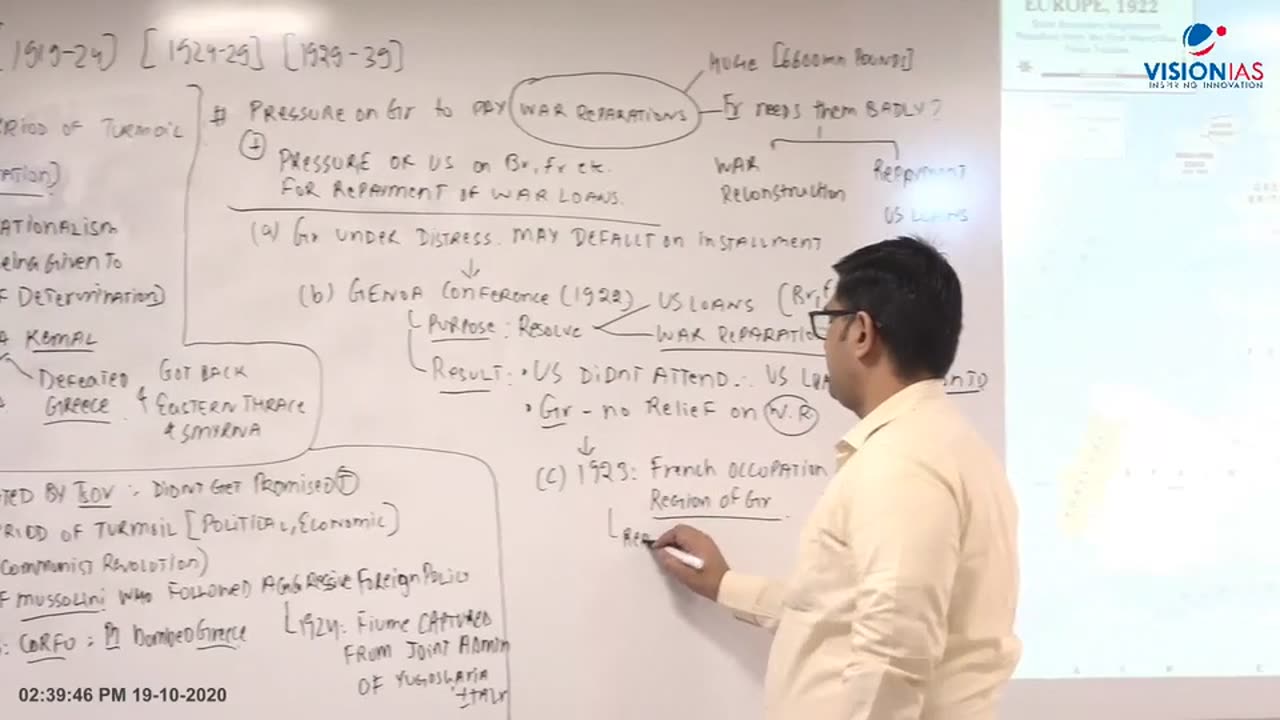 1919-24] [1924-29] [1929-39]
PERIOD OF TURMOIL
ATIONALISM
Being Given To
F DETERMINATION]
A KEMAL
DEFEATED GREECE
& GOT BACK
EASTERN THRACE
& SMYRNA
# PRESSURE ON Gr to PAY WAR REPARATIONS
HUGE [6600mn POUNDS]
Fr NEEDS them BADLY?
WAR
RECONSTRUCTION
REPAYMENT
US LOANS
+
PRESSURE OF US on Br, Fr etc.
FOR REPAYMENT OF WAR LOANS.
(a) Gr UNDER DISTRESS. MAY DEFALLT on INSTALLMENT
(b) GENOA CONFERENCE (1922)
PURPOSE: RESOLVE
US LOANS (Br, F
WAR REPARATION
RESULT: • US DIDNT ATTEND ∴ US
• Gr - no RELIEF on W.R
(c) 1923: FRENCH OCCUPATION
REGION OF Gr
TED BY TSOV ∵ DIDNT GET PROMISED T
PERIOD OF TURMOIL [POLITICAL, ECONOMIC]
COMMUNIST REVOLUTION)
F MUSSOLINI WHO FOLLOWED AGGRESSIVE FOREIGN POLICY
: CORFU : It bombed Greece
1924: FIUME CAPTURED
FROM JOINT ADMIN
OF YUGOSLAVIA
& ITALY
EUROPE, 1922
VISIONIAS
INSPIRING INNOVATION
02:39:46 PM 19-10-2020